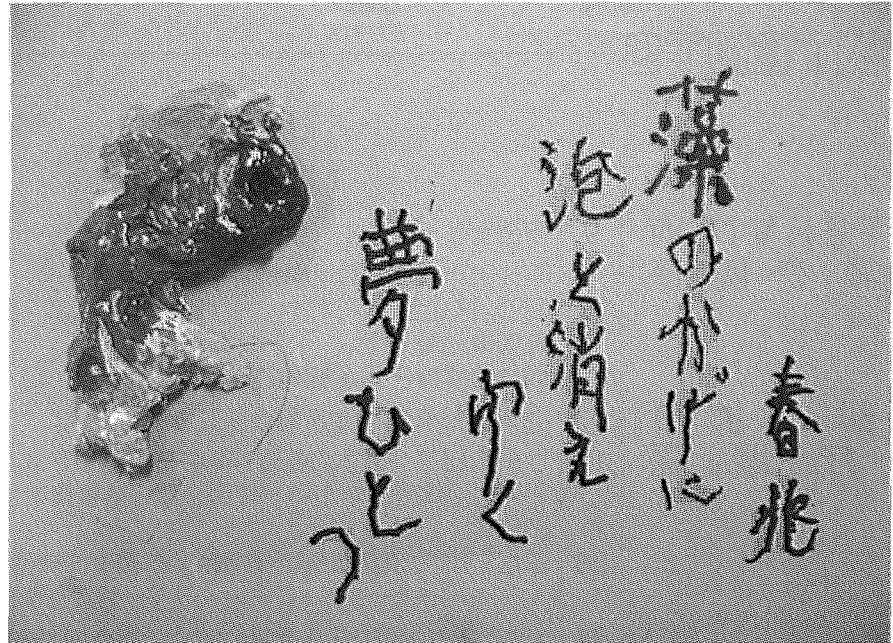 春兆
藻のかげに
泡と消え
ゆく
夢ひとつ